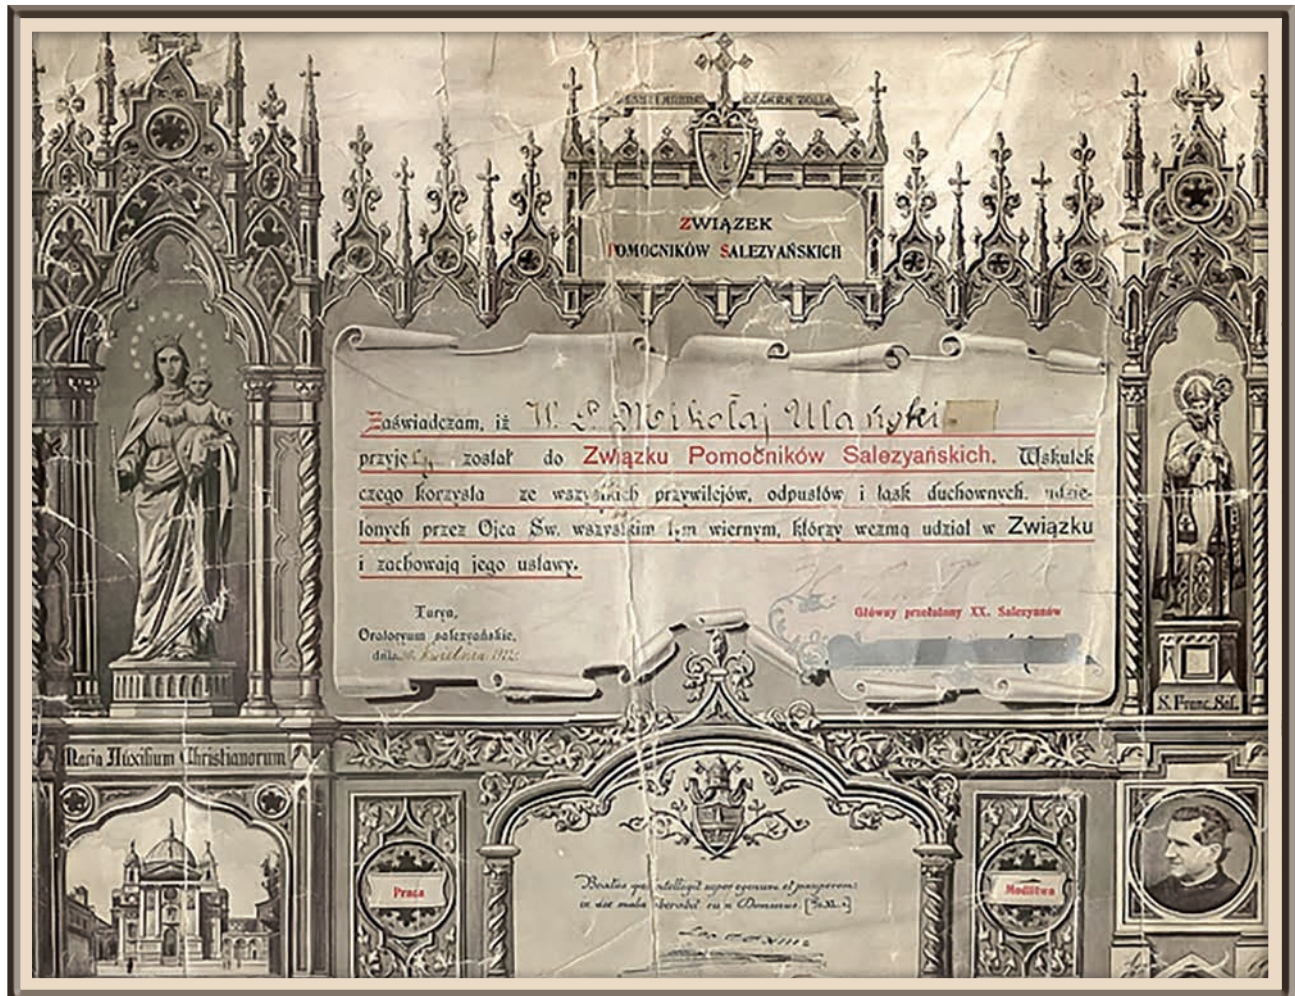 ZWIĄZEK
POMOCNIKÓW SALEZYAŃSKICH
Zaświadczam, iż W. P. Mikołaj Ulański
przyjęty został do Związku Pomocników Salezyańskich. Wskutek
czego korzysta ze wszystkich przywilejów, odpustów i łask duchownych, udzie-
lonych przez Ojca Św. wszystkim tym wiernym, którzy wezmą udział w Związku
i zachowają jego ustawy.
Turyn,
Oratoryum salezyańskie,
dnia Kwietnia
Główny przełożony XX. Salezyanów
S. Franc. Sal.
Maria Auxilium Christianorum
Praca
Beatus qui intelligit super egenum et pauperem:
in die mala liberabit eum Dominus.
Modlitwa
Leo PP XIII